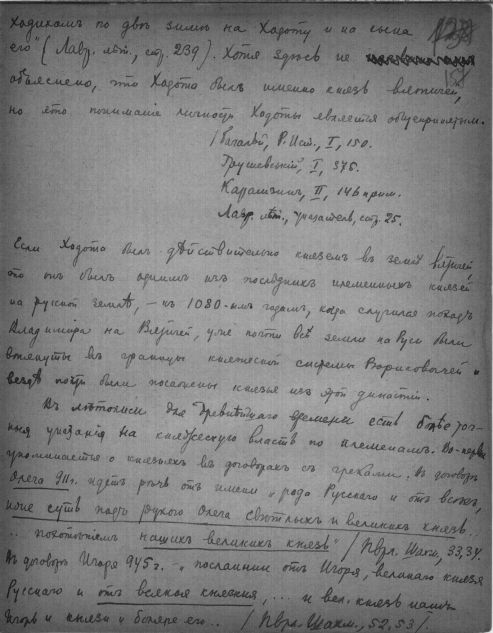 ходихомъ по двѣ зимы на Ходоту и на сына
его" (Лавр. лѣт., стр. 239). Хотя здѣсь не
объяснено, что Ходота былъ именно князь вятичей,
но это пониманіе личности Ходоты является общепринятым.
/ Багалѣй, Р. Ист., I, 150.
Грушевський, I, 375.
Карамзинъ, II, 146 прим.
Лавр. лѣт., указатель, стр. 25.
Если Ходота былъ дѣйствительно княземъ въ землѣ вятичей,
то онъ былъ однимъ изъ послѣднихъ племенныхъ князей
на русской землѣ, – къ 1080-ымъ годамъ, когда случился походъ
Владиміра на Вятичей, уже почти всѣ земли на Руси были
втянуты въ границы княжеской системы Борисовичей и
вездѣ почти были посажены князья изъ этой династіи.
Въ лѣтописи для древнѣйшаго времени есть болѣе точ-
ныя указанія на княжескую власть по племенамъ. Во-первых
упоминается о князьяхъ въ договорахъ съ греками. Въ договорѣ
Олега 911 г. идетъ рѣчь отъ имени "рода Русскаго и отъ всѣхъ,
иже суть подъ рукою Олега свѣтлыхъ и великихъ князь..
.. похотьніемъ нашихъ великихъ князь" / Пврл. Шахм., 33, 34.
Въ договорѣ Игоря 945 г. – "посланнии отъ Игоря, великаго князя
Русскаго и отъ всякоя княжия, ... и вел. князь нашь
Игорь и князи и боляре его.. / Пврл. Шахм., 52, 53/.